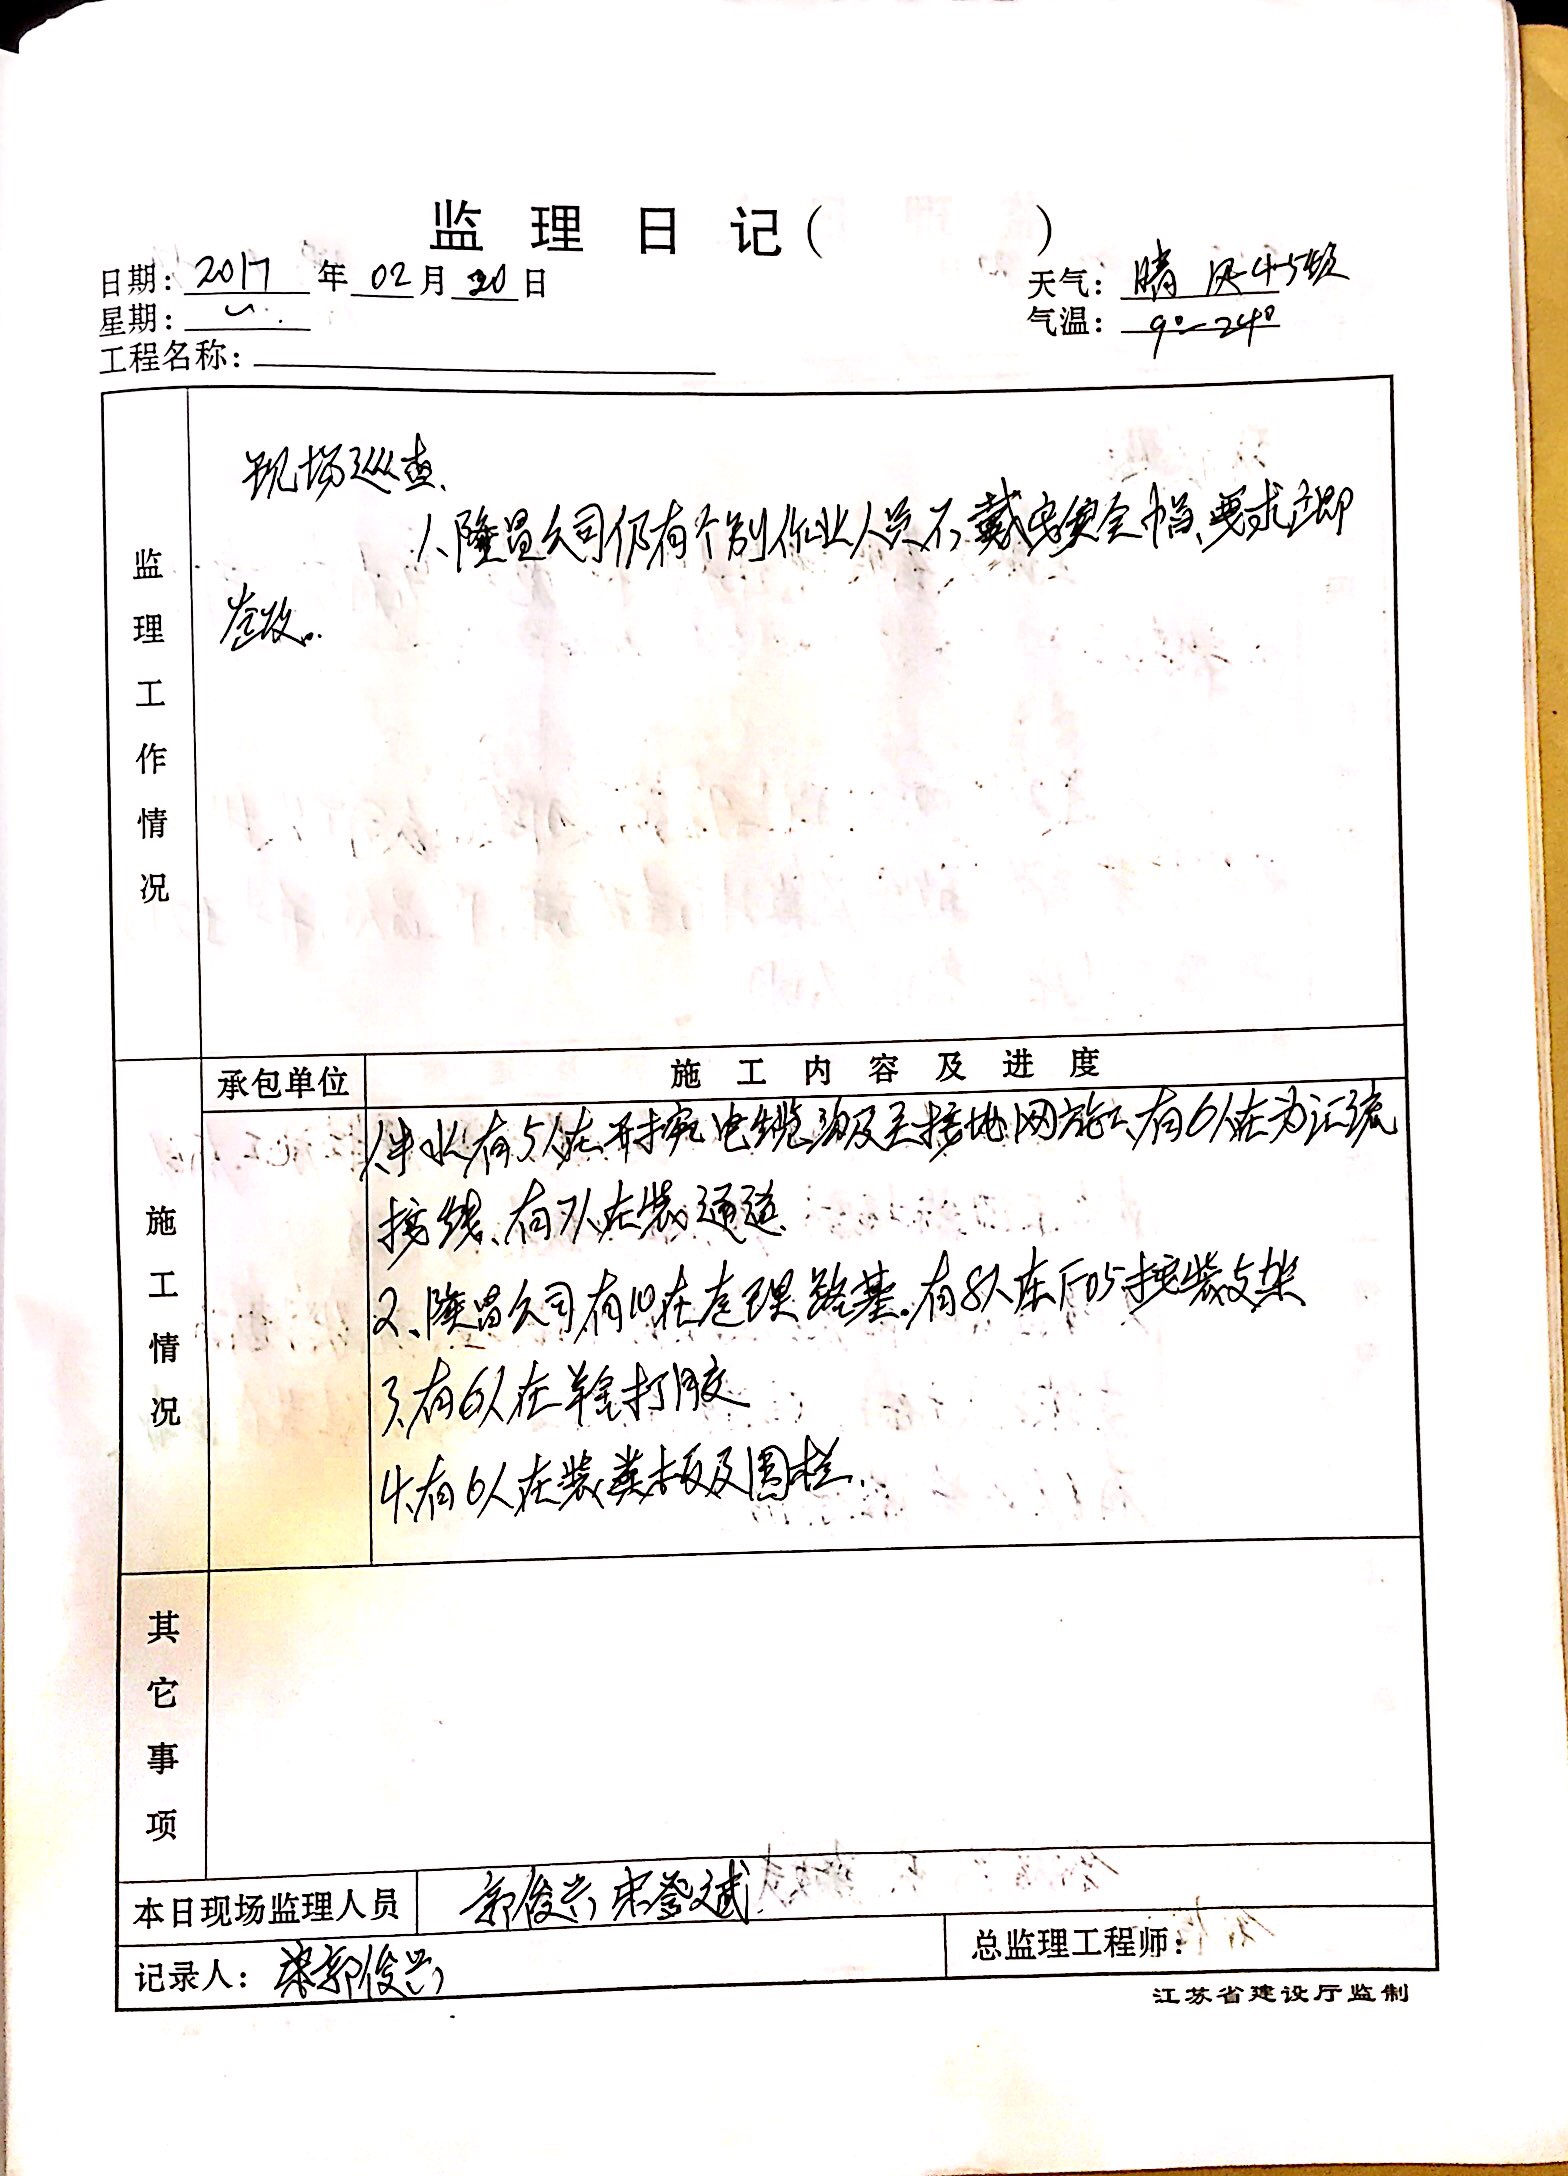 监理日记（ ）
日期：2017年02月20日
天气：晴 风4-5级
星期：一
气温：9°—24°
工程名称：
监理工作情况
现场巡查、
1、隆昌公司仍有个别作业人员不戴安全帽、要求立即
整改。
承包单位
施工内容及进度
施工情况
有5人在开挖电缆沟及至接地网施工、有6人在为汇流
接线、有7人在装通道、
2、隆昌公司有10在处理路基。有8人在F05挖装支架
3、有6人在打胶
4、有6人在装板及围栏、
其它事项
本日现场监理人员
郭俊兴 宋登斌
记录人：郭俊兴
总监理工程师：
江苏省建设厅监制